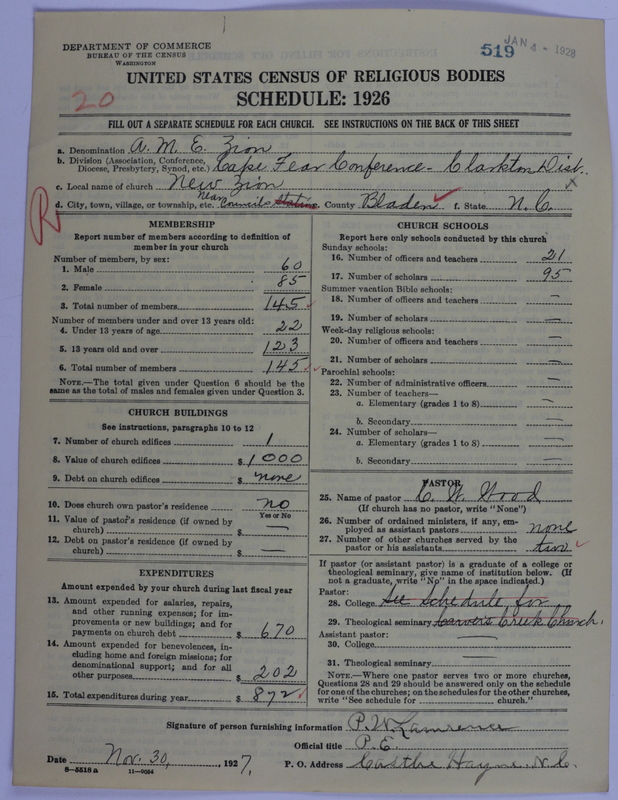 DEPARTMENT OF COMMERCE
BUREAU OF THE CENSUS
WASHINGTON
519 JAN 4 - 1928
UNITED STATES CENSUS OF RELIGIOUS BODIES
20
SCHEDULE: 1926
FILL OUT A SEPARATE SCHEDULE FOR EACH CHURCH. SEE INSTRUCTIONS ON THE BACK OF THIS SHEET
a. Denomination A. M. E. Zion
b. Division (Association, Conference, Diocese, Presbytery, Synod, etc.) Cape Fear Conference - Clarkton Dist.
c. Local name of church New Zion x
R d. City, town, village, or township, etc. near Councils Station County Bladen ✓ f. State N. C.
MEMBERSHIP
Report number of members according to definition of
member in your church
Number of members, by sex:
1. Male 60
2. Female 85
3. Total number of members 145 ✓
Number of members under and over 13 years old:
4. Under 13 years of age 22
5. 13 years old and over 123
6. Total number of members 145 ✓✓
NOTE.—The total given under Question 6 should be the
same as the total of males and females given under Question 3.
CHURCH BUILDINGS
See instructions, paragraphs 10 to 12
7. Number of church edifices 1
8. Value of church edifices $ 1000
9. Debt on church edifices $ none
10. Does church own pastor's residence no
Yes or No
11. Value of pastor's residence (if owned by
church) $ —
12. Debt on pastor's residence (if owned by
church) $ —
EXPENDITURES
Amount expended by your church during last fiscal year
13. Amount expended for salaries, repairs,
and other running expenses; for im-
provements or new buildings; and for
payments on church debt $ 670
14. Amount expended for benevolences, in-
cluding home and foreign missions; for
denominational support; and for all
other purposes $ 202
15. Total expenditures during year $ 872 ✓
CHURCH SCHOOLS
Report here only schools conducted by this church
Sunday schools:
16. Number of officers and teachers 21
17. Number of scholars 95
Summer vacation Bible schools:
18. Number of officers and teachers —
19. Number of scholars —
Week-day religious schools:
20. Number of officers and teachers —
21. Number of scholars —
Parochial schools:
22. Number of administrative officers —
23. Number of teachers—
a. Elementary (grades 1 to 8) —
b. Secondary —
24. Number of scholars—
a. Elementary (grades 1 to 8) —
b. Secondary —
PASTOR
25. Name of pastor C. W. Wood
(If church has no pastor, write "None")
26. Number of ordained ministers, if any, em-
ployed as assistant pastors none
27. Number of other churches served by the
pastor or his assistants two ✓
If pastor (or assistant pastor) is a graduate of a college or
theological seminary, give name of institution below. (If
not a graduate, write "No" in the space indicated.)
Pastor:
28. College See Schedule for
29. Theological seminary Carvers Creek Church.
Assistant pastor:
30. College —
31. Theological seminary —
NOTE.—Where one pastor serves two or more churches,
Questions 28 and 29 should be answered only on the schedule
for one of the churches; on the schedules for the other churches,
write "See schedule for ________ church."
Signature of person furnishing information P. W. Lawrence
Official title P. E.
Date Nov. 30, 1927, P. O. Address Castle Hayne, N. C.
8—5518 a 11—9064